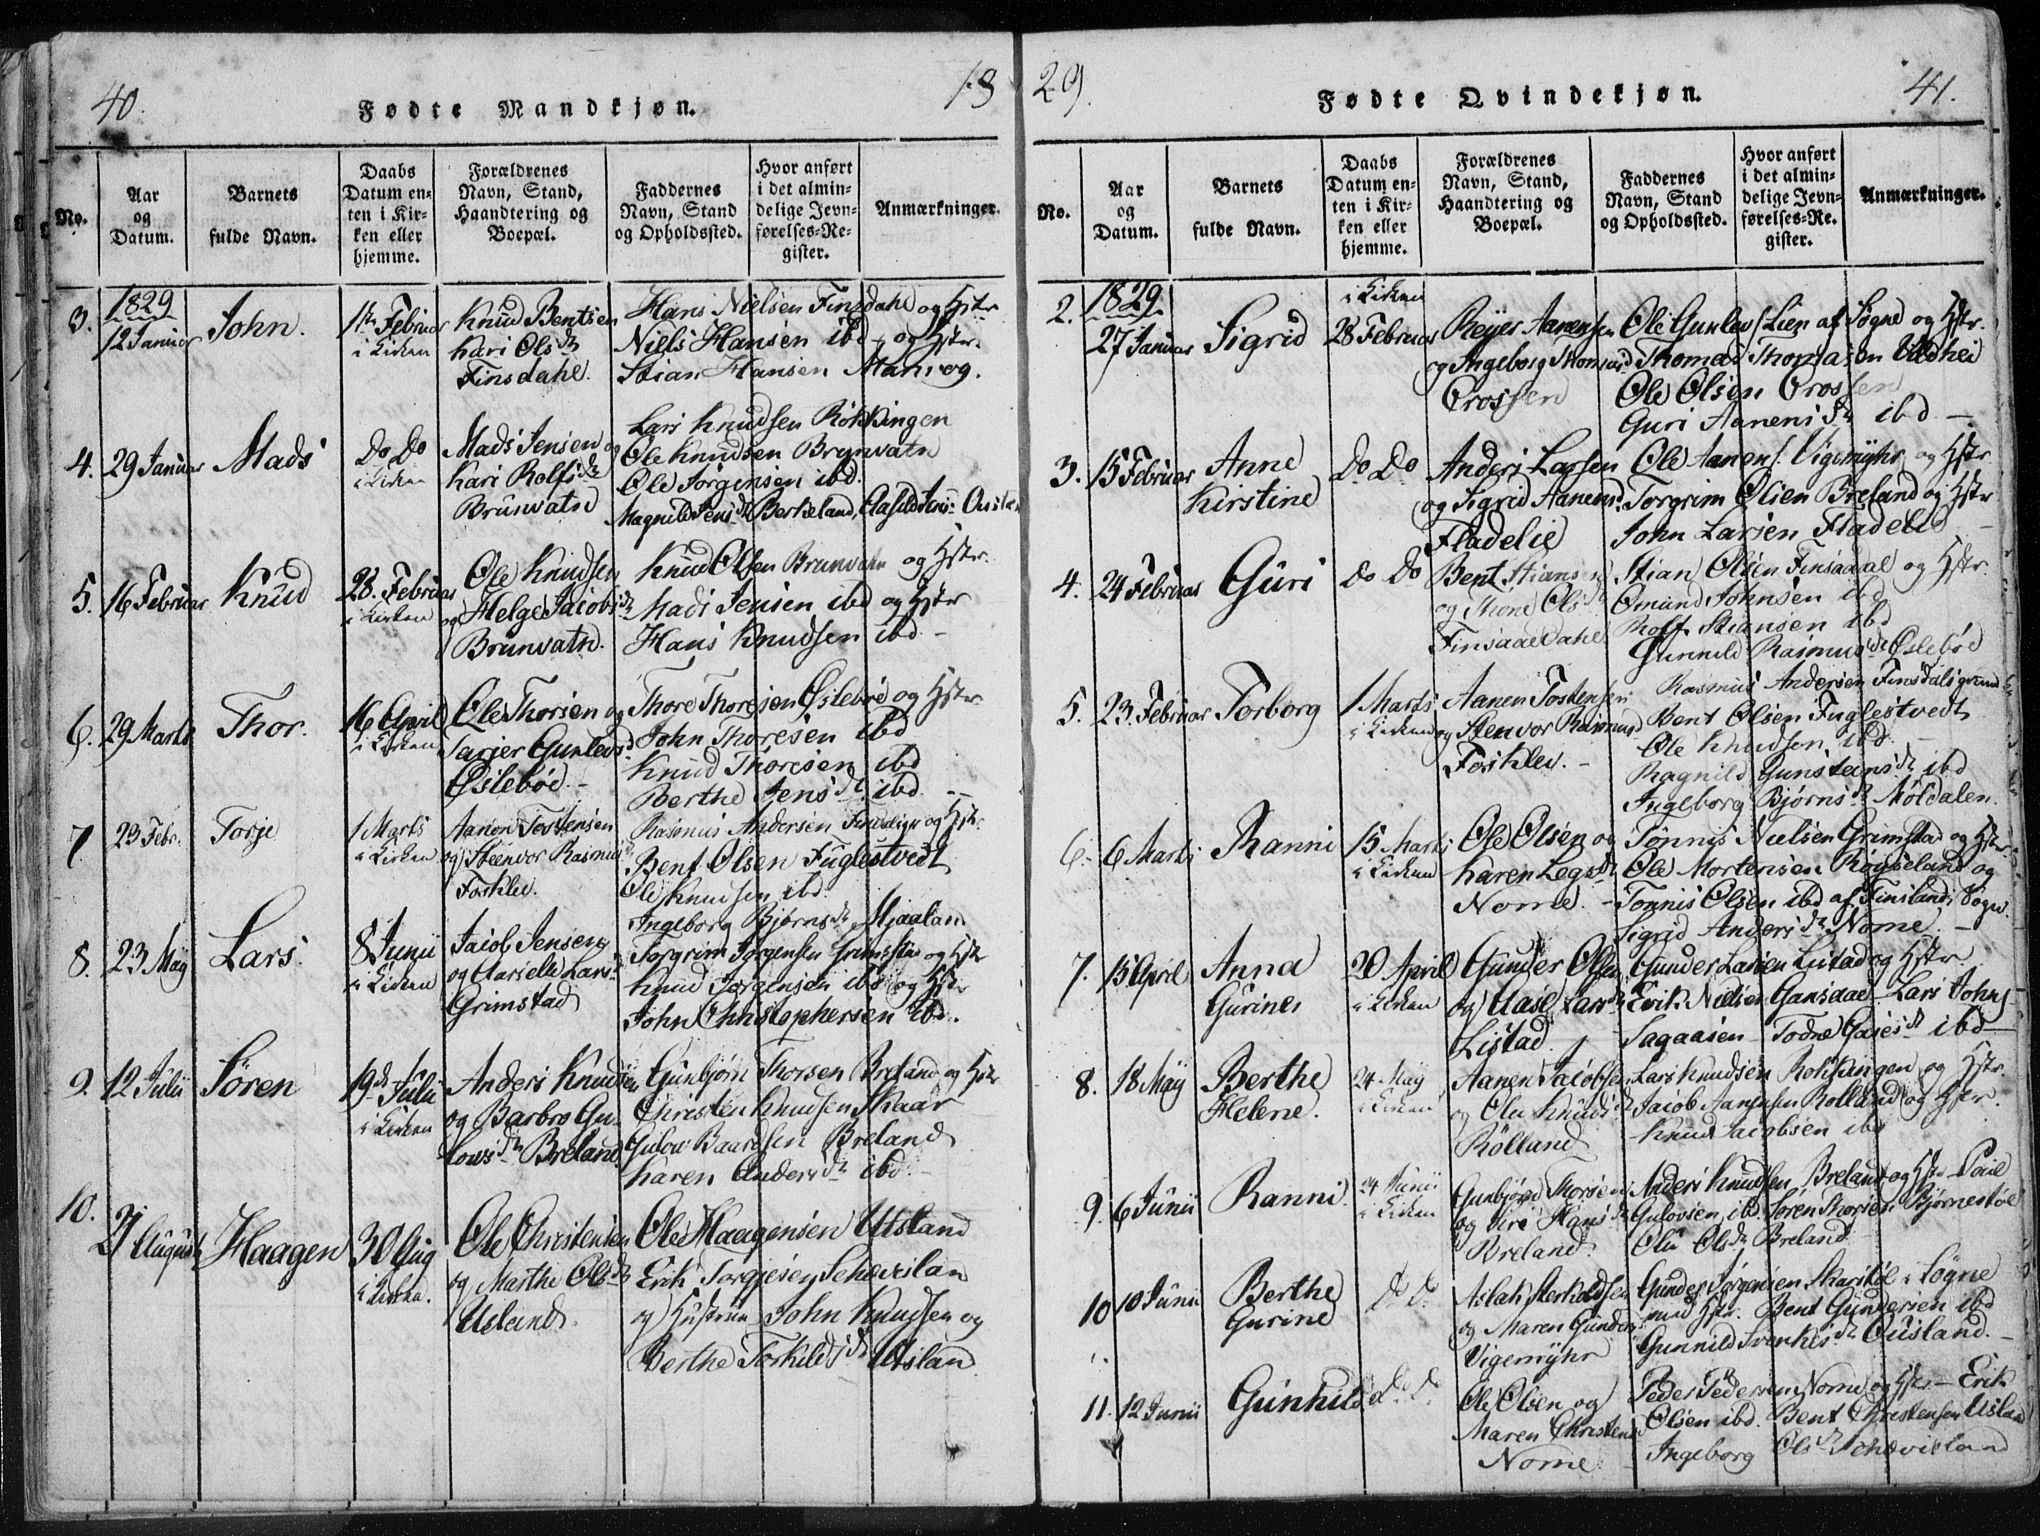 40.
Fødte Mandkjøn.
18
No.
Aar
og
Datum.
Barnets
fulde Navn.
Daabs
Datum en-
ten i Kir-
ken eller
hjemme.
Forældrenes
Navn, Stand,
Haandtering og
Boepæl.
Faddernes
Navn, Stand
og Opholdssted.
Hvor anført
i det almin-
delige Jevn-
førelses-Re-
gister.
Anmærkninger.
3.
1829
12 Januar
John.
1ste Februar
i Kirken
Knud Bentsen
Kari Olsdr
Finsdahl.
Hans Nielsen Finsdahl og Hstr
Niels Hansen ibd og Hstr.
Stian Hansen
4.
29 Januar
Mads
Do Do
i Kirken
Mads Jensen og
Kari Rolfsdr
Brunvatn
Lars Knudsen Røkkingen
Ole Knudsen Brunvatn
Ole Jørgensen ibd.
Magnild Jensdr Berkeland,
5.
16 Februar
Knud
28. Februar
i Kirken
Ole Knudsen
og Helge Jacobsdr
Brunvatn.
Knud Olsen Brunvatn og Hstr.
Mads Jensen ibd og Hstr
Hans Knudsen ibd -
6.
29 Marts
Thor.
16 April
i Kirken
Ole Thorsen og
Gunlevsd
Øslebød -
Thore Thoresen Øslebød og Hstr
John Thoresen ibd
Knud Thoresen ibd
Berthe Jensdr ibd. -
7
23 Febr.
Torje
1 Marts
i Kirken
Aanon Tostensen
og Steenvor Rasmusdr
Fosklev.
Rasmus Andersen og Hstr.
Bent Olsen Fuglestvedt
Ole Knudsen ibd.
Ingeborg Bjørnsdr Mjaaland
8.
23 May
Lars.
8 Junii
i Kirken
Jacob Jensen
og Larsd
Grimstad
Torgrim Jørgensen Grimstad og Hstr
Knud Jørgensen ibd og Hstr
John Christophersen ibd.
9.
12 Julii
Søren
19de Julii
i Kirken
Anders Knudsen
og Barbro Gu-
lowsdr Breland
Gunbjørn Thorsen Breland og Hstr
Christen Knudsen Skaar
Gulow Baardsen Breland
Karen Andersdr ibd. -
10.
21 August
Haagen
30 Aug
i Kirken.
Ole Christensen
og Marthe Olsdr
Usland
Ole Haagensen Utsland
Erik Torgjesen
og Hustrue John Knudsen og
Berthe Torkildsdr Utslan
29.
Fødte Qvindekjøn.
41.
No.
Aar
og
Datum.
Barnets
fulde Navn.
Daabs
Datum en-
ten i Kir-
ken eller
hjemme.
Forældrenes
Navn, Stand,
Haandtering og
Boepæl.
Faddernes
Navn, Stand
og Opholdssted.
Hvor anført
i det almin-
delige Jevn-
førelses-Re-
gister.
Anmærkninger.
2.
1829
27 Januar
Sigrid
i Kirken
28 Februar
Reyer Aanensen
og Ingeborg Thomasd
Crossen
Ole Gunlevs. Lien af Søgne og Hstr.
Thomas Thomasson
Ole Olsen Crossen
Guri Aanensdr ibd -
3.
15 Februar
Anne
Kirstine
Do Do
Anders Larsen
og Sigrid Aanensd.
Fladelie
Ole Aanens. Vigemyhr og Hstr
Torgrim Olsen Breland og Hstr
John Larsen Fladelie -
4.
24 Februar
Guri
Do Do
Bent Stiansen
og Thone Olsdr
Finsaaedahl
Stian Olsen Finsaadal og Hstr.
Omund Johnsen ibd
Rolf Stiansen ibd
Gunnild Rasmusdr Øslebød
5.
23. Februar
Torborg
1 Marts
i Kirken
Aanen Tostensen
og Stenvor Rasmusd
Fosklev. -
Rasmus Andersen
Bent Olsen Fuglestvedt
Ole Knudsen ibd -
Ragnild Gunsteinsdr ibd
Ingeborg Bjørnsdr Moldalen.
6.
6 Marts
Ranni
15 Marts
i Kirken
Ole Olsen og
Karen Legsdr
Nome. -
Tønnis Nielsen Grimstad og Hstr.
Ole Mortensen og
Tønnis Olsen ibd af Finslands Sogn.
Sigrid Andersdr Nome. -
7.
15 April
Anna
Gurines
20 April
i Kirken
Gunder Olsen
og Aase Larsdr
Listad
Gunder Larsen Listad og Hstr
Erik Nielsen Lars Johns
Sagaasen ibd
8.
18 May
Berthe
Helene.
24 May
i Kirken
Aanen Jacobsen
og Olu Knudsdr
Rølland
Lars Knudsen Røkkingen og Hstr.
Jacob Aanensen Rolland og Hstr.
Knud Jacobsen ibd
9.
6 Junii
Ranni.
24 Junii
i Kirken
Gunbjørn Thorsen
og Siri Hansdr
Breland.
Anders Knudsen Breland og Hstr Poul
Gulovsen ibd. Søren Thorsen Bjørnestøl
Olu Olsdr Breland
10
10 Junii
Berthe
Gurine
Do Do
Aslak Terkeldsen
og Maren Gundersd
Vigemyhr
Gunder Jørgensen i Søgne
med Hstr. Bent Gundersen ibd
Gunnild Ousland. -
11.
12 Junii
Gunhild
Do Do
Ole Olsen og
Maren Christensd
Nome
Peder Pedersen Nome og Hstr - Erik
Olsen ibd. Bent Christensen Usland
Ingeborg Olsdr